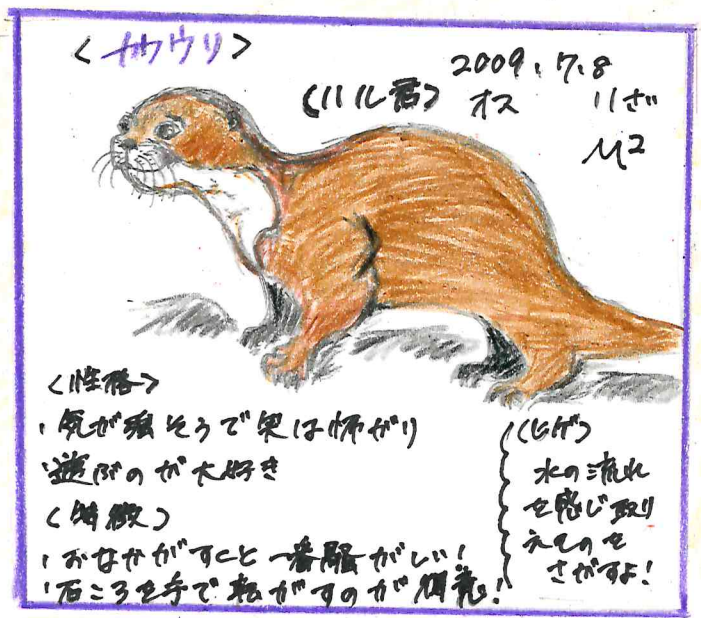 <カワウリ>
2009.7.8
(ハル君) オス りざ
M2
<性格>
・気が強そうで実は怖がり
・遊ぶのが大好き
<特徴>
・おなかがすくと一番騒がしい!
・石ころを手で転がすのが得意!
(ヒゲ)
水の流れ
を感じ取り
えものを
さがすよ!